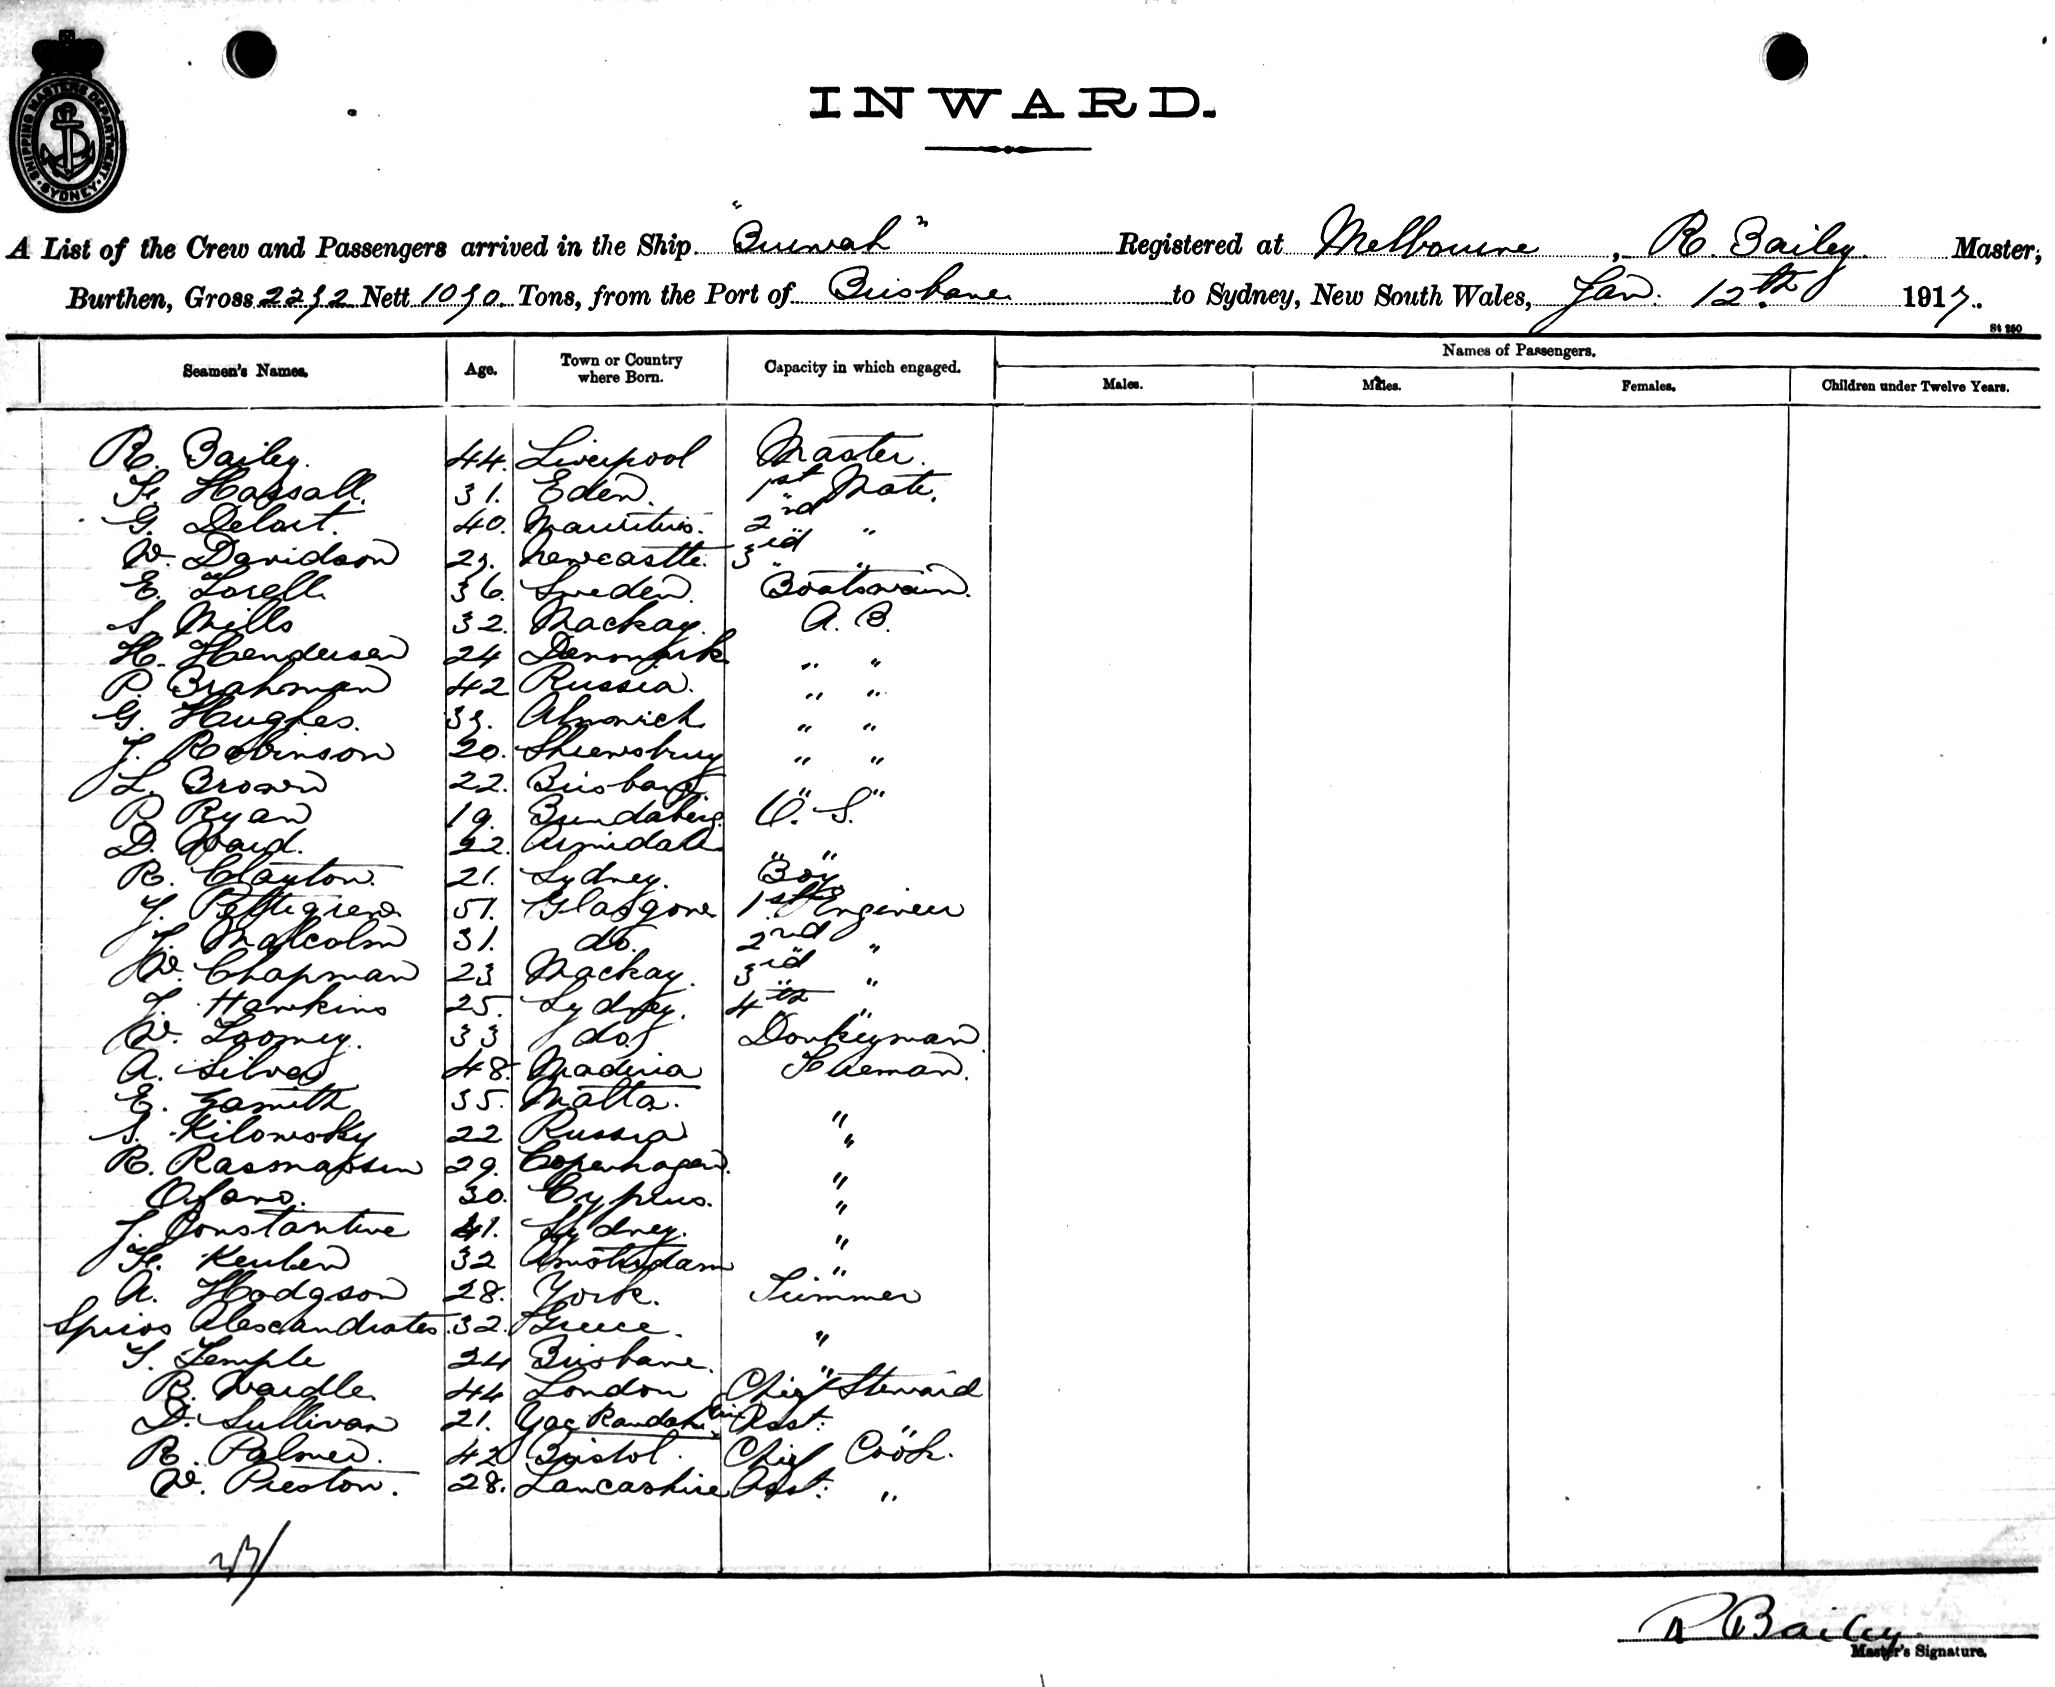 SHIPPING MASTERS DEPARTMENT
SYDNEY
INWARD.
A List of the Crew and Passengers arrived in the Ship "Burwah" Registered at Melbourne, R. Bailey Master;
Burthen, Gross Nett Tons, from the Port of Brisbane to Sydney, New South Wales, Jan. 12th 1917.
St 250
Seamen's Names. Age. Town or Country where Born. Capacity in which engaged. Names of Passengers.
Males. Males. Females. Children under Twelve Years.
R. Bailey. 44. Liverpool Master.
F. Hassall. 31. Eden. 1st Mate.
G. Delart. 40. Mauritius. 2nd "
W. Davidson Newcastle. 3rd "
E. Lorell 36. Sweden. Boatswain.
S. Mills 32. Mackay. A. B.
H. Hendersen 24 Denmark " "
P. Brahman 42 Russia. " "
G. Hughes. Alnwick " "
J. Robinson 20. Shrewsbury " "
L. Brown 22. Brisbane " "
P. Ryan 19. Bundaberg. O. S.
D. Ward. 22. Armidale " "
R. Clayton. 21. Sydney. Boy
J. Pettigrew 51. Glasgow 1st Engineer
J. Malcolm 31. do. 2nd "
W. Chapman 23 Mackay. 3rd "
J. Hawkins 25. Sydney. 4th "
W. Toomey. 33 do. Donkeyman.
A. Silva 48. Madiria Fireman.
E. Zamith 35. Malta. "
S. Kilowsky 22 Russia "
R. Rasmassen 29. Copenhagen. "
30. Cyprus. "
J. Constantine 41. Sydney. "
H. Keuben 32 Amsterdam "
A. Hodgson 28. York. Trimmer
Spiros Alescandrates. 32. Greece. "
T. Temple 24 Brisbane. "
R. Wardle. 44 London Chief Steward
D. Sullivan 21. Yackandah Asst: "
R. Palmer. 42 Bristol. Chief Cook.
W. Preston. 28. Lancashire Asst: "
R Bailey.
Master's Signature.